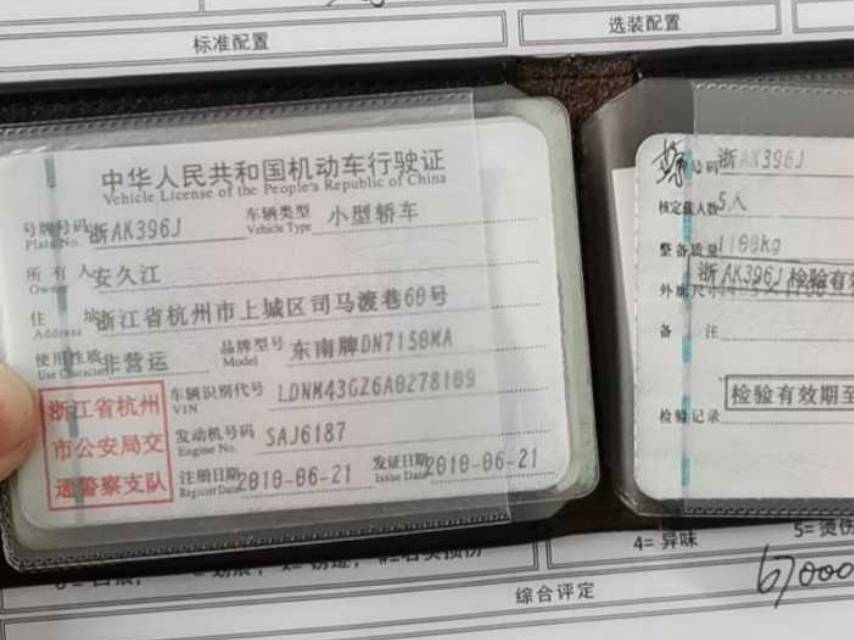 标准配置
选装配置
中华人民共和国机动车行驶证
Vehicle License of the People's Republic of China
号牌号码 浙AK396J 车辆类型 小型轿车
Plate No. Vehicle Type
所有人 安久江
Owner
住址 浙江省杭州市上城区司马渡巷60号
Address
使用性质 非营运 品牌型号 东南牌DN7150MA
Use Character Model
浙江省杭州
市公安局交
通警察支队
车辆识别代号 LDNM43GZ6A0278109
VIN
发动机号码 SAJ6187
Engine No.
注册日期 2010-06-21 发证日期 2010-06-21
Register Date Issue Date
号码 浙AK396J
核定载人数 5人
整备质量 1180kg
浙AK396J 检验有效
外廓尺寸
备注
检验有效期至
检验记录
4= 异味
5= 烫伤
综合评定
67000